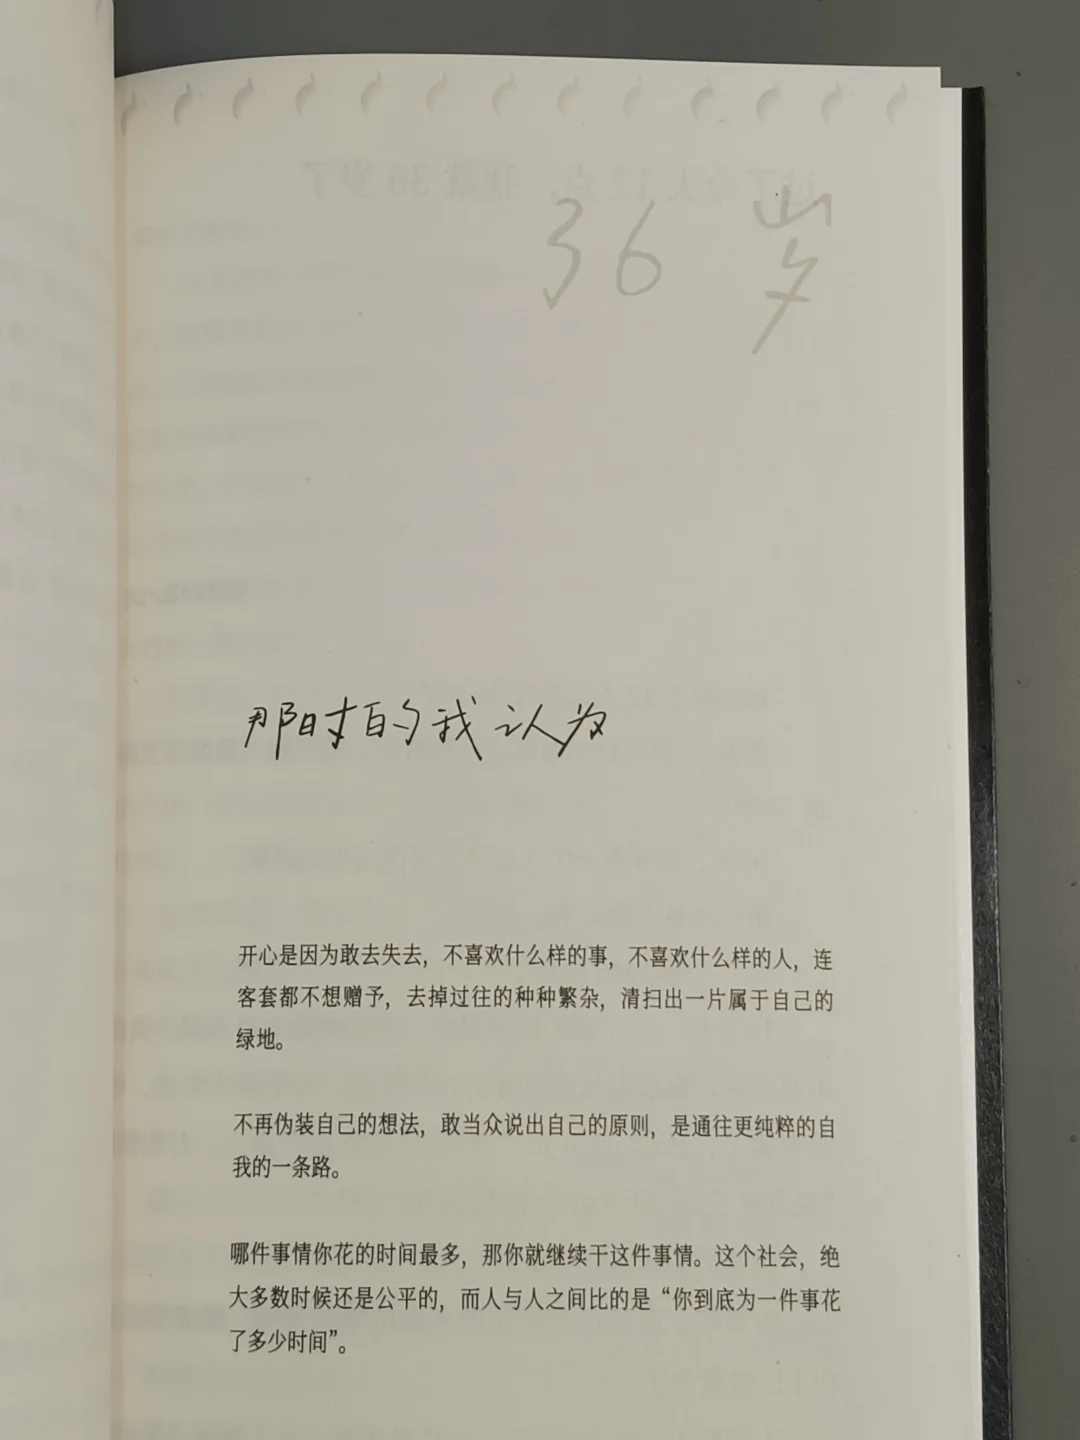 36 岁
那时的我认为
开心是因为敢去失去，不喜欢什么样的事，不喜欢什么样的人，连
客套都不想赠予，去掉过往的种种繁杂，清扫出一片属于自己的
绿地。
不再伪装自己的想法，敢当众说出自己的原则，是通往更纯粹的自
我的一条路。
哪件事情你花的时间最多，那你就继续干这件事情。这个社会，绝
大多数时候还是公平的，而人与人之间比的是“你到底为一件事花
了多少时间”。